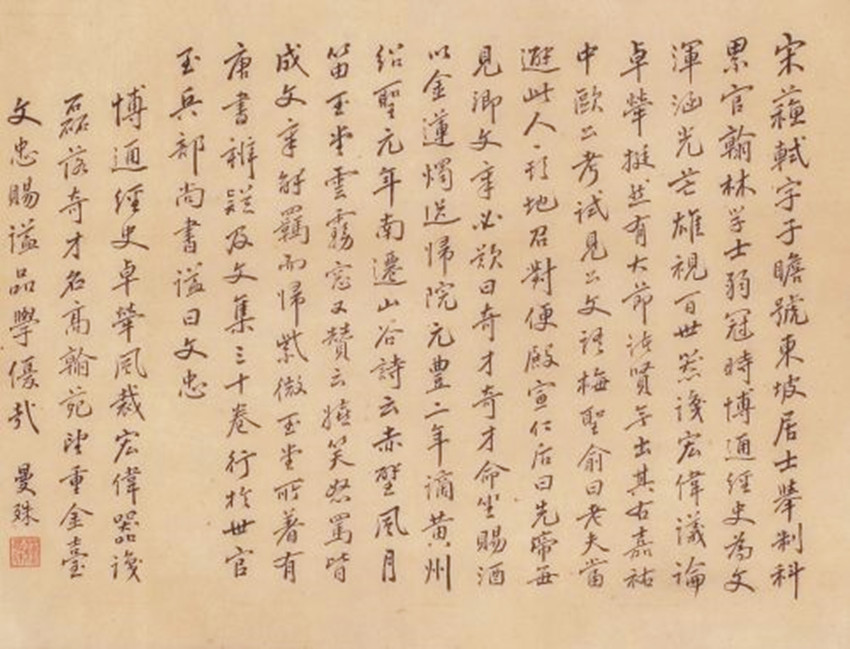 宋蘓軾字子瞻號東坡居士舉制科
累官翰林学士弱冠時博通經史為文
渾涵光芒雄視百世器識宏偉議論
卓犖挺然有大節諸賢無出其右嘉祐
中歐公考試見公文語梅聖俞曰老夫當
避此人一形地召對便殿宣仁后曰先帝每
見卿文章必歎曰奇才奇才命坐賜酒
以金蓮燭送歸院元豊二年謫黄州
紹聖元年南遷山谷詩云赤壁風月
笛玉堂雲霧窓又贊云嬉笑怒罵皆
成文章解羈而歸紫微玉堂所著有
唐書辨疑及文集三十卷行於世官
至兵部尚書謚曰文忠
博通經史卓犖風裁宏偉器識
磊落奇才名高翰苑望重金臺
文忠賜謚品學優哉
曼殊